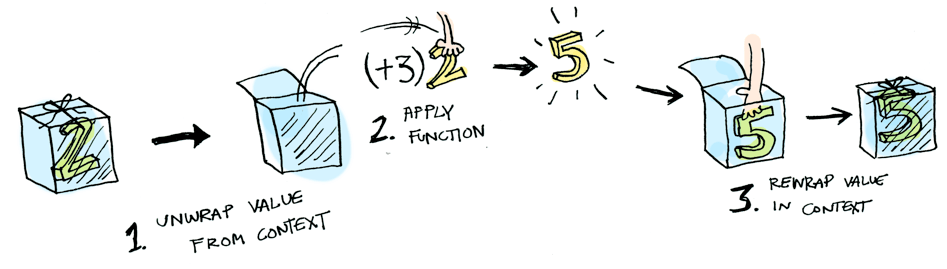 2
1. UNWRAP VALUE
FROM CONTEXT
(+3) 2
2. APPLY
FUNCTION
5
5
3. REWRAP VALUE
IN CONTEXT
5